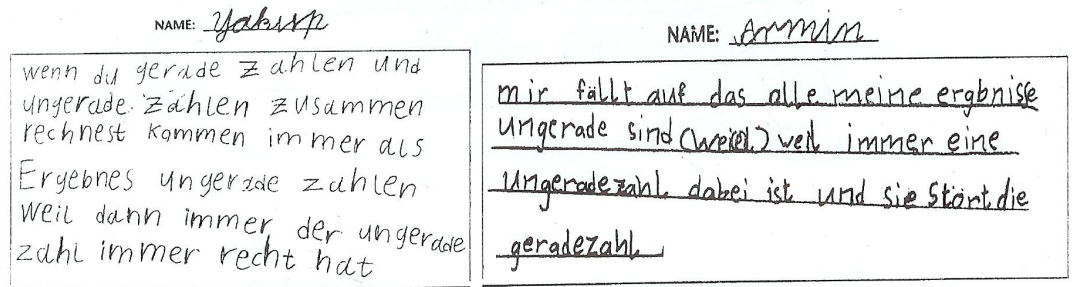 NAME: Yakup
wenn du gerade Zahlen und
ungerade Zahlen zusammen
rechnest kommen immer als
Ergebnes ungerade zahlen
weil dann immer der ungerade
zahl immer recht hat
NAME: Armin
mir fällt auf das alle meine ergbnisse
ungerade sind (weiel) weil immer eine
ungeradezahl dabei ist und sie Stört die
geradezahl